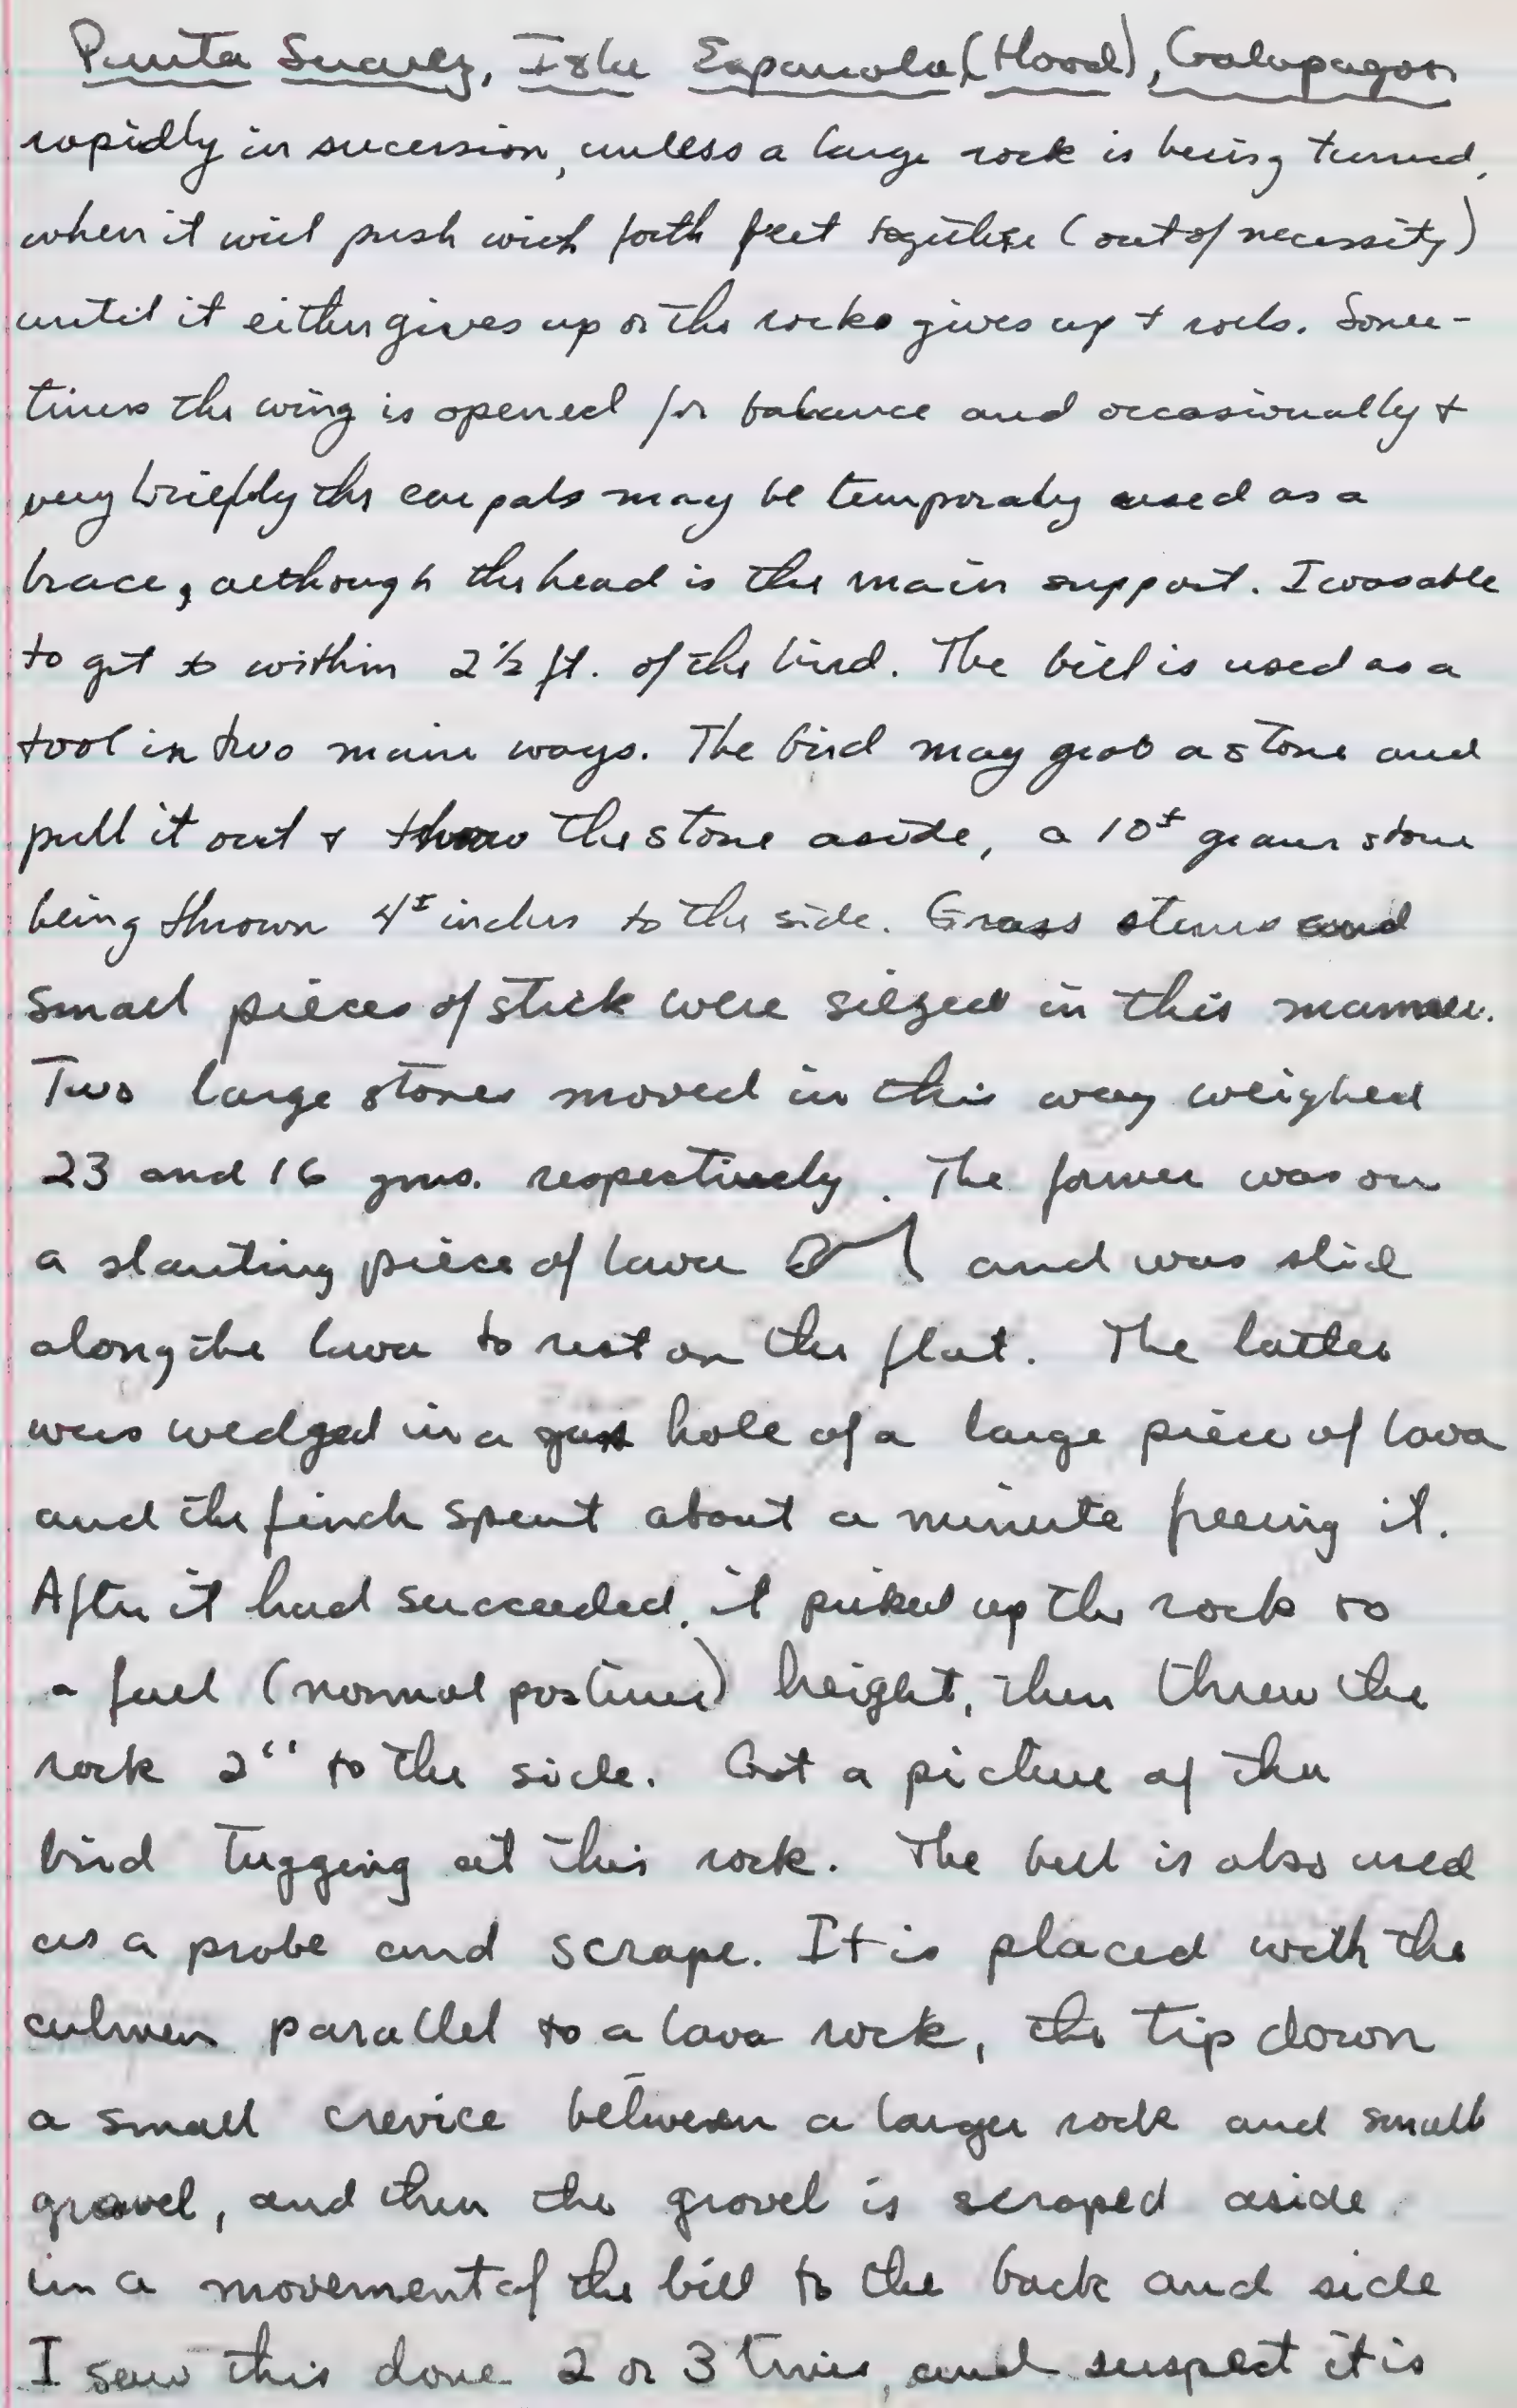 Punta Suarez, Isla Espanola (Hood), Galapagos
rapidly in sucession, unless a large rock is being turned,
when it will push with both feet together (out of necessity)
until it either gives up or the rocks gives up + rolls. Some-
times the wing is opened for balance and occasionally +
very briefly the carpals may be temporaly used as a
brace, although the head is the main support. I was able
to get to within 2½ ft. of the bird. The bill is used as a
tool in two main ways. The bird may grab a stone and
pull it out + throw the stone aside, a 10± gram stone
being thrown 4± inches to the side. Grass stems and
small pieces of stick were siezed in this manner.
Two large stones moved in this way weighed
23 and 16 gms. respectively. The former was on
a slanting piece of lava and was slid
along the lava to rest on the flat. The latter
was wedged in a hole of a large piece of lava
and the finch spent about a minute freeing it.
After it had succeeded, it picked up the rock to
a full (normal posture) height, then threw the
rock 2" to the side. Got a picture of the
bird tugging at this rock. The bill is also used
as a probe and scrape. It is placed with the
culmen parallel to a lava rock, the tip down
a small crevice between a larger rock and small
gravel, and then the gravel is scraped aside
in a movement of the bill to the back and side
I saw this done 2 or 3 times, and suspect it is